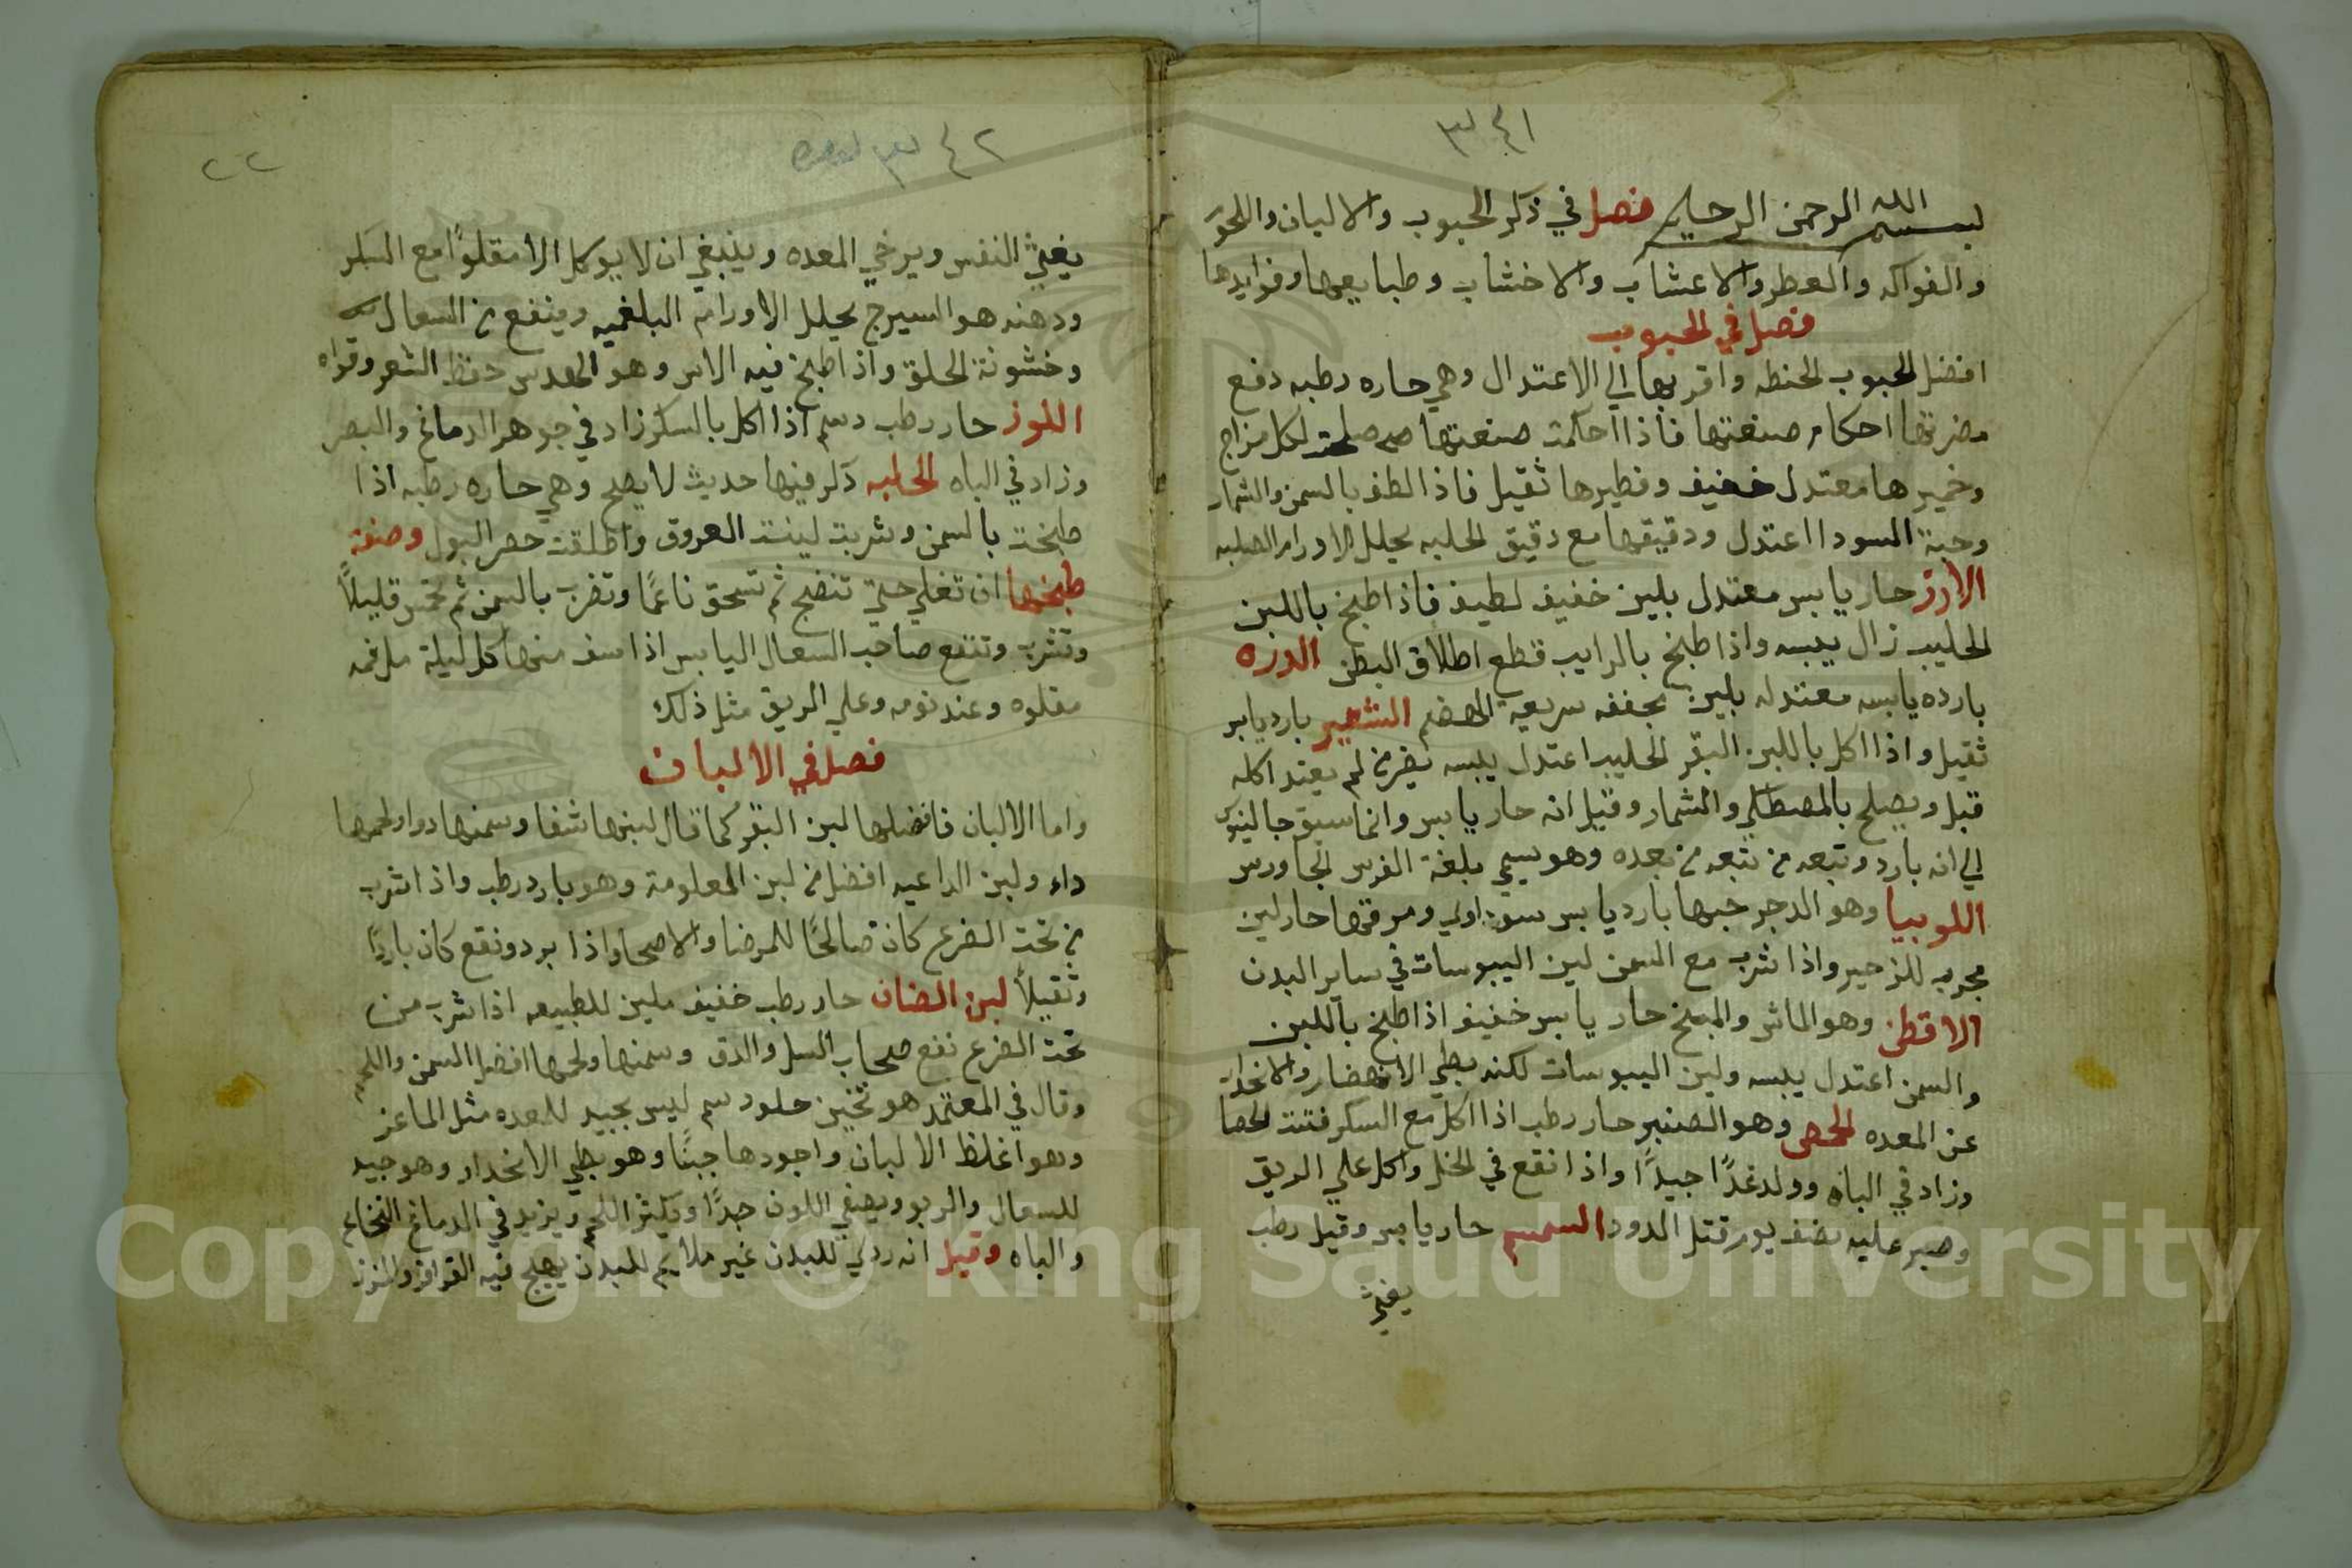 ٣٤١
بسم الله الرحمن الرحيم فصل في ذكر الحبوب والالبان واللحوم
والفواكه والعطر والاعشاب والاخشاب وطبايعها وفوايدها
فصل في الحبوب
افضل الحبوب الحنطه واقربها الي الاعتدال وهي حاره رطبه دفع
مضرتها احكام صنعتها فاذا احكمت صنعتها صلحت لكل مزاج
وخميرها معتدل خفيف وفطيرها ثقيل فاذا لطف بالسمن والشمار
وحبة السودا اعتدل ودقيقها مع دقيق الحلبه يحلل الاورام الصلبه
الارز حار يابس معتدل بلين خفيف لطيف فاذا طبخ باللبن
الحليب زال يبسه واذا طبخ بالرايب قطع اطلاق البطن الدوره
بارده يابسه معتدله بلين مجففه سريعة الهضم الشعير بارد يابس
ثقيل واذا اكل باللبن البقر الحليب اعتدل يبسه يضر من لم يعتد اكله
قبل ويصلح بالمصطكي والشمار وقيل انه حار يابس وانما سبق جالينوس
الي انه بارد وتبعه من تبعه من بعده وهو يسمي بلغة الفرس الجاورس
اللوبيا وهو الدجر حبها بارد يابس سوداوي ومرقتها حار لين
مجرب للزحير واذا شرب مع السمن لين اليبوسات في ساير البدن
الاقطن وهو الماش والمنج حار يابس خفيف اذا طبخ باللبن
والسمن اعتدل يبسه ولين اليبوسات لكنه بطي الانهضار والانحدار
عن المعده الحمص وهو الصنبر حار رطب اذا اكل مع السكر فتت الحصا
وزاد في الباه وولد غذًا جيدًا واذا نقع في الخل واكل علي الريق
وصبر عليه نصف يوم قتل الدود السمسم حار يابس وقيل رطب
يغثي
٣٤٢
٢٢
يغثي النفس ويرخي المعده وينبغي ان لا يوكل الا مقلوًا مع السكر
ودهنه هو السيرج يحلل الاورام البلغميه وينفع من السعال
وخشونة الحلق واذا طبخ فيه الاس وهو الهدس حفظ الشعر وقواه
اللوز حار رطب دسم اذا اكل بالسكر زاد في جوهر الدماغ والبصر
وزاد في الباه الحلبه ذكر فيها حديث لا يصح وهي حاره رطبه اذا
طبخت بالسمن وشربت لينت العروق واطلقت حصر البول وصفة
طبخها ان تغلي حتي تنضج ثم تسحق ناعمًا وتضرب بالسمن ثم تحمس قليلًا
وتشرب وتنفع صاحب السعال اليابس اذا سف منها كل ليلة مل فمه
مقلوه وعند نومه وعلي الريق مثل ذلك
فصل في الالبان
واما الالبان فافضلها لبن البقر كما قال لبنها شفا وسمنها دوا ولحمها
داء ولبن الراعيه افضل من لبن المعلومة وهو بارد رطب واذا شرب
من تحت الضرع كان صالحًا للمرضا والاصحا واذا برد ونقع كان باردًا
وثقيلًا لبن الضان حار رطب خفيف ملين للطبيعه اذا شرب من
تحت الضرع نفع صحاب السل والدق وسمنها ولحمها افضل السمن واللحم
وقال في المعتمد هو ثخين حلو دسم ليس بجيد للمعده مثل الماعز
وهو اغلظ الالبان واجودها جبنًا وهو بطي الانحدار وهو جيد
للسعال والربو ويصفي اللون جدًا ويكثر اللحم ويزيد في الدماغ النخاع
والباه وقيل انه ردي للبدن غير ملايم للبدن يهيج فيه القراقر
Copyright © King Saud University